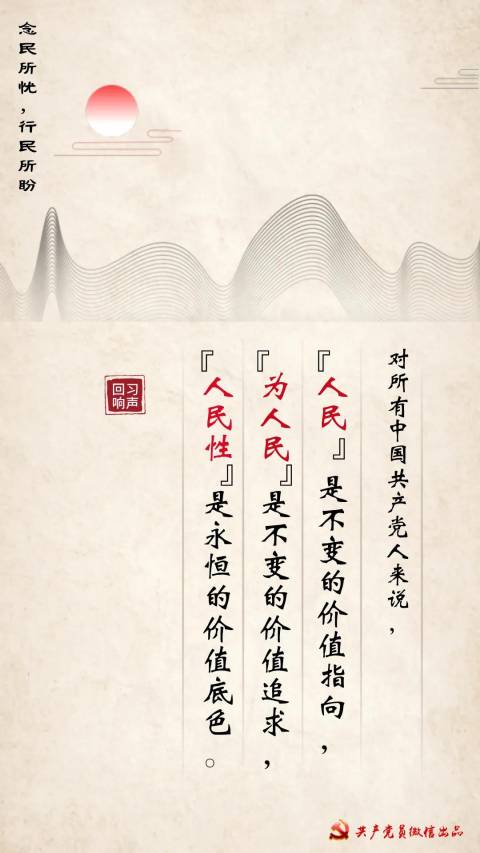 念民所忧，行民所盼
对所有中国共产党人来说，
『人民』是不变的价值指向，
『为人民』是不变的价值追求，
『人民性』是永恒的价值底色。
习声
回响
共产党员微信出品